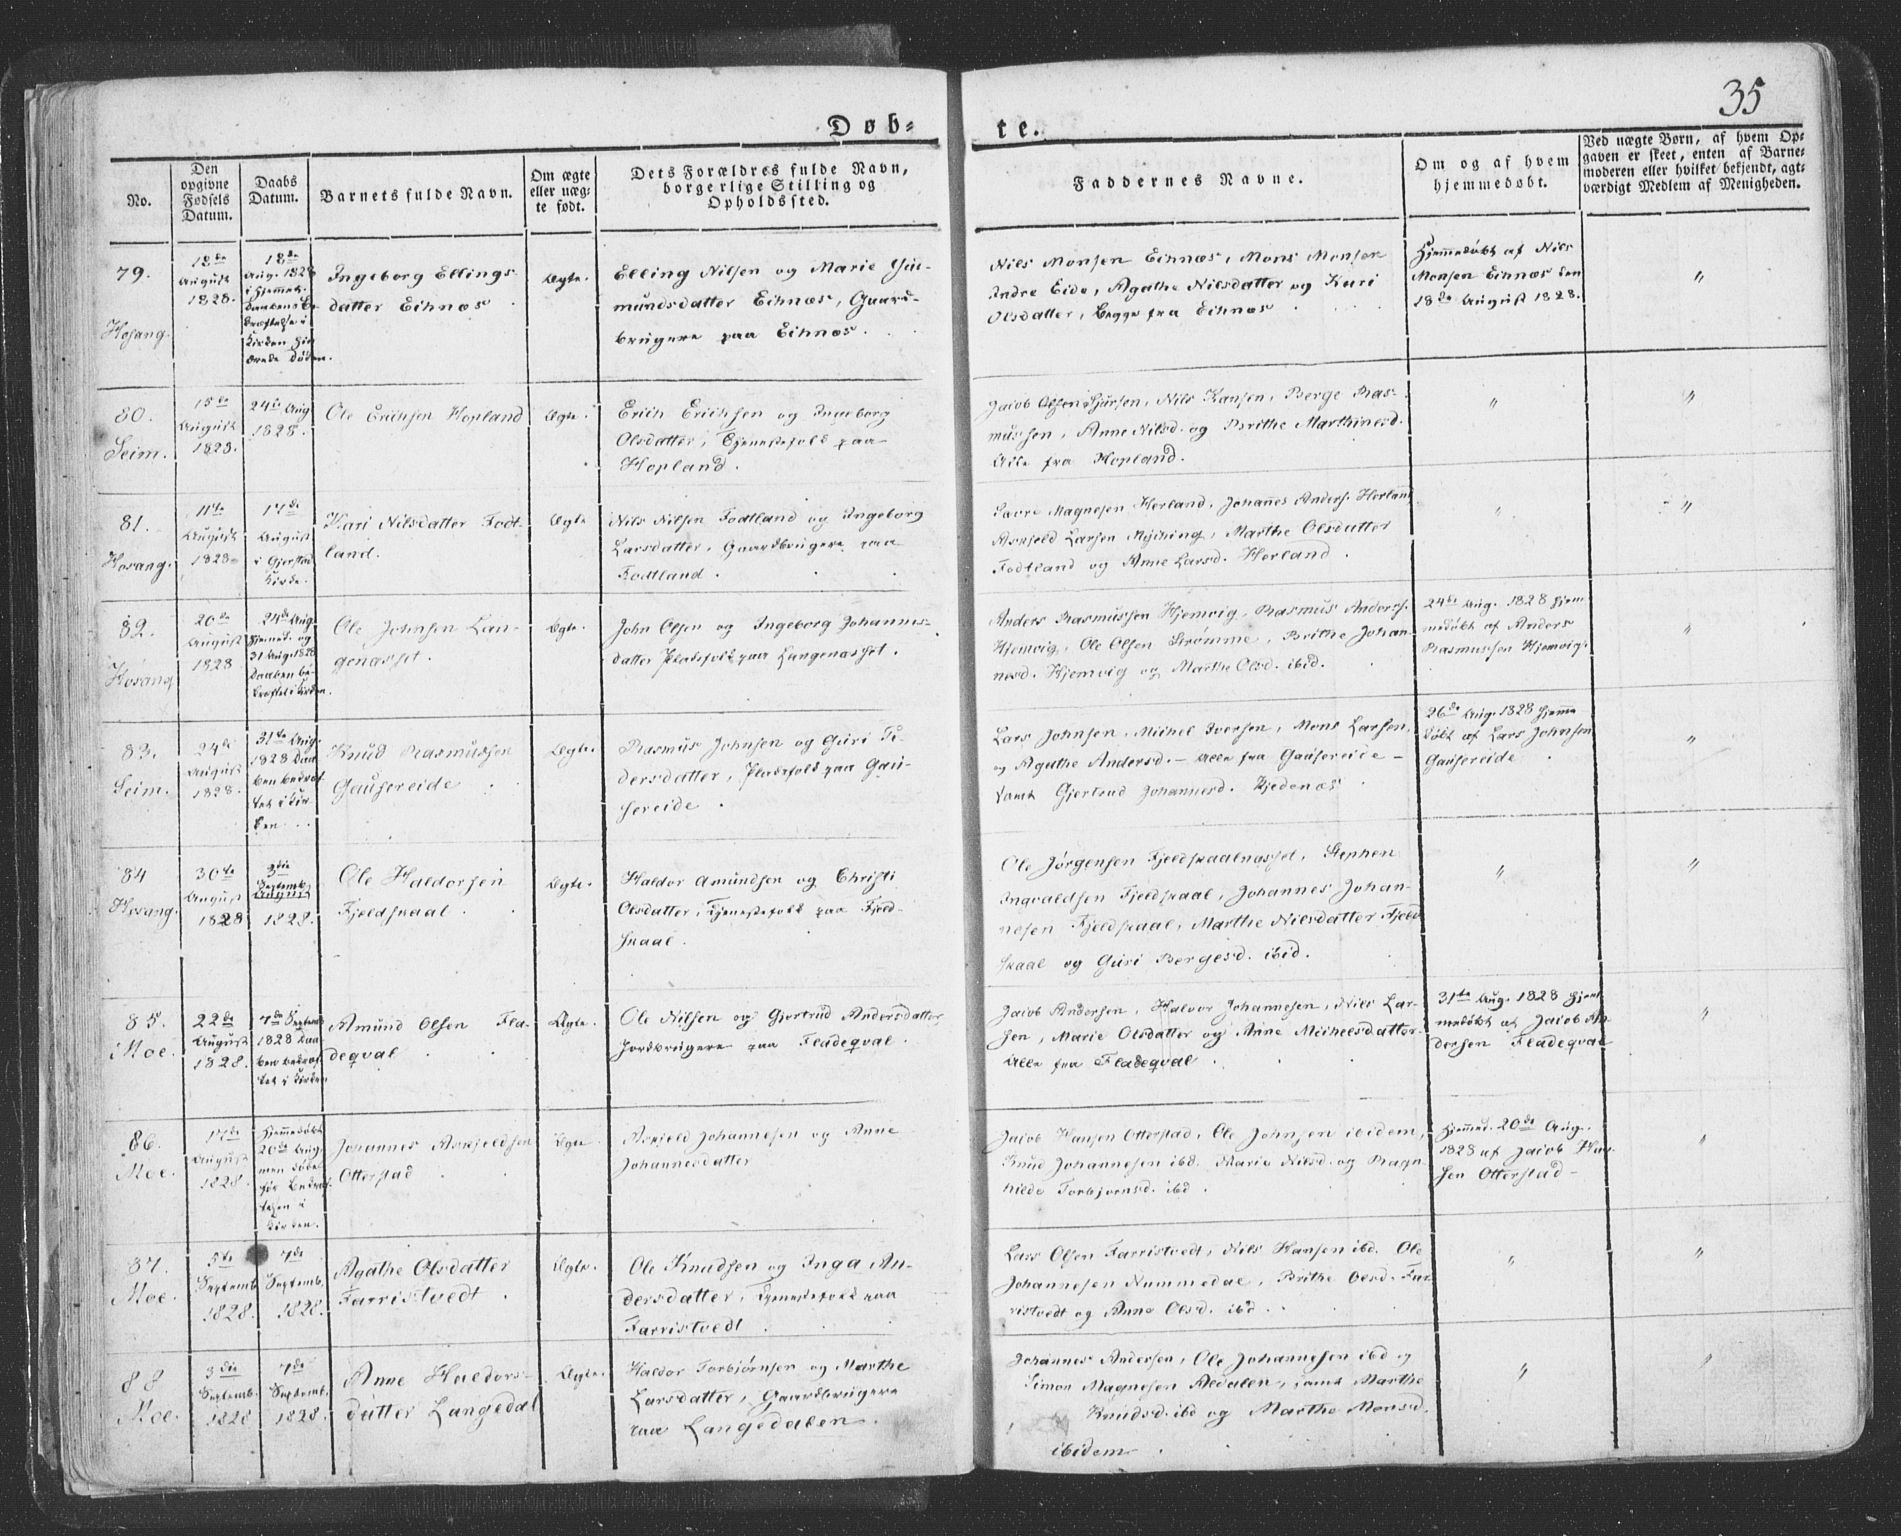 35
Døb=
te.
No.
Den
opgivne
Fødsels
Datum.
Daabs
Datum.
Barnets fulde Navn.
Om ægte
eller uæg=
te født.
Dets Forældres fulde Navn,
borgerlige Stilling og
Opholdssted.
Faddernes Navne.
Om og af hvem
hjemmedøbt.
Ved uægte Børn, af hvem Op=
gaven er skeet, enten af Barne=
moderen eller hvilket bekjendt, agt=
værdigt Medlem af Menigheden.
79.
Hosang.
18de
August
1828.
18de
Aug. 1828
i Hjemmet.
Ingeborg Ellings
datter Eihnæs
Ægte.
Elling Nilsen og Marie
mundsdatter Eihnæs, Gaard-
brugere paa Eihnæs.
Nils Monsen Eihnæs, Mons Monsen
Indre Eide, Agathe Nilsdatter og Kari
Olsdatter, begge fra Eihnæs
Hjemmedøbt af Nils
Monsen Eihnæs den
18de August 1828.
"
80.
Seim.
15de
August
1828.
24de Aug.
1828.
Ole Erichsen Hopland
Ægte.
Erich Erichsen og Ingeborg
Olsdatter, Tjenestefolk paa
Hopland.
Jacob Olsen, Nils Hansen, Berge Ras-
mussen, Anne Nilsd. og Brithe Marthinesd.
Alle fra Hopland.
"
"
81.
Hosang.
11te
August
1828
17de
August
i Gjerstad
Kirke.
Kari Nilsdatter Fodt
land.
Ægte
Nils Nilsen Fodtland og Ingeborg
Larsdatter, Gaardbrugere paa
Fodtland.
Magnesen Herland, Johannes Anders. Herland
Askjeld Larsen, Marthe Olsdatter
Fodtland og Anne Larsd. Herland.
"
"
82.
Hosang
20de
August
1828
24de Aug.
hjemmed. og
31 Aug. 1828
Daaben be-
kræftet i Kirken.
Ole Johnsen Lan-
genæsset.
Ægte.
John Olsen og Ingeborg Johannes-
datter Pladsfolk paa Langenæsset.
Anders Rasmussen Hjemvig, Rasmus Anders.
Hjemvig, Ole Olsen Strømme, Brithe Johan-
nesd. Hjemvig og Marthe Olsd. ibid.
24de Aug. 1828 hjem
medøbt af Anders
Rasmussen Hjemvig.
"
83.
Seim.
24de
August
1828.
31te Aug.
1828 Daa
ben bekræf
tet i Kir
ken
Knud Rasmussen
Gausereide
Ægte.
Rasmus Johnsen og Guri
dersdatter, Pladsfolk paa Gau-
sereide.
Lars Johnsen, Michel Iversen, Mons Larsen,
og Agathe Andersd. – Alle fra Gausereide –
samt Gjertrud Johannesd.
26de Aug. 1828 hjemme
døbt af Lars Johnsen
Gausereide
"
84
Hosang.
30te
August
1828
3die
Septemb.
August
1828.
Ole Haldorsen
Fjeldskaal
Ægte.
Haldor Amundsen og Christi
Olsdatter, Tjenestefolk paa Fjeld-
skaal.
Ole Jørgensen Fjeldskaalnæsset, Stephen
Ingvaldsen Fjeldskaal, Johannes Johan-
nesen Fjeldskaal, Marthe Nilsdatter Fjeld
skaal og Guri Bergesd. ibid.
"
"
85.
Moe.
22de
August
1828.
7de Septemb
1828 Daa
ben bekræf
tet i Kirken
Amund Olsen Fla-
deqval
Ægte.
Ole Nilsen og Gjertrud Andersdatter,
Jordbrugere paa Fladeqval.
Jacob Andersen, Halvor Johannesen, Nils Lar-
sen, Marie Olsdatter og Anne Michelsdatter
Alle fra Fladeqval
31te Aug. 1828 hjem
medøbt af Jacob An
dersen Fladeqval
"
86.
Moe.
17de
August
1828.
Hjemmedøbt
20de Aug.
men døde
før bekræf
telsen i
Kirken.
Johannes Askjeldsen
Otterstad
Ægte.
Askjeld Johannesen og Anne
Johannesdatter
Jacob Hansen Otterstad, Ole Johnsen ibidem,
Knud Johannesen ibd. Marie Nilsd. og Ragn-
hilde Torbjørnsd. ibd.
hjemmed. 20de Aug.
1828 af Jacob Han
sen Otterstad –
"
87.
Moe.
5te
Septemb.
1828.
7de
Septemb.
1828.
Agathe Olsdatter
Farristvedt.
Ægte.
Ole Knudsen og Inga An-
dersdatter, Tjenestefolk paa
Farristvedt
Lars Olsen Farristvedt, Nils Hansen ibd. Ole
Johannesen Nummedal, Brithe Olsd. Far
ristvedt og Anne Olsd. ibd.
"
"
88
Moe.
3die
Septemb.
1828
7de
Septemb.
1828.
Anne Haldors-
datter Langedal
Ægte.
Haldor Torbjørnsen og Marthe
Larsdatter, Gaardbrugere
paa Langedalen.
Johannes Andersen, Ole Johannesen ibd og
Simon Magnesen Aldalen, samt Marthe
Knudsd. ibd og Marthe Monsd.
ibidem
"
"